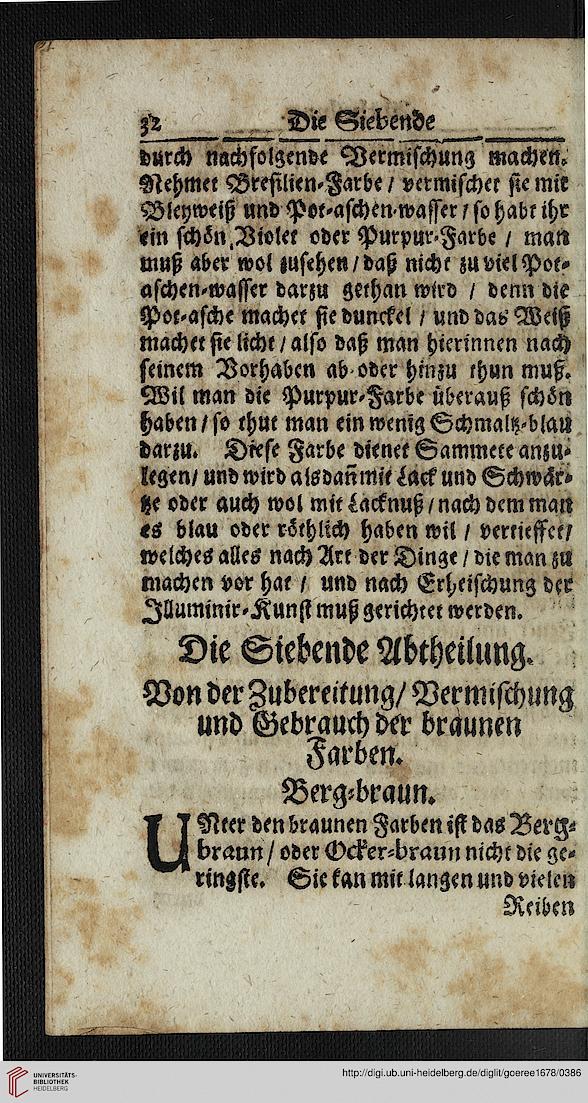 32 Die Siebende
durch nachfolgende Vermischung machen.
Nehmet Bresilien-Farbe / vermischet sie mit
Bleyweiß und Pot-aschen-wasser / so habt ihr
ein schön Violet oder Purpur-Farbe / man
muß aber wol zusehen / daß nicht zu viel Pot-
aschen-wasser darzu gethan wird / denn die
Pot-asche machet sie dunckel / und das Weiß
machet sie licht / also daß man hierinnen nach
seinem Vorhaben ab-oder hinzu thun muß.
Wil man die Purpur-Farbe überauß schön
haben / so thut man ein wenig Schmaltz-blau
darzu. Diese Farbe dienet Sammete anzu-
legen / und wird alsdañ mit Lack und Schwär-
tze oder auch wol mit Lacknuß / nach dem man
es blau oder röthlich haben wil / vertieffet /
welches alles nach Art der Dinge / die man zu
machen vor hat / und nach Erheischung der
Illuminir-Kunst muß gerichtet werden.
Die Siebende Abtheilung.
Von der Zubereitung / Vermischung
und Gebrauch der braunen
Farben.
Berg-braun.
UNter den braunen Farben ist das Berg-
braun / oder Ocker-braun nicht die ge-
ringste. Sie kan mit langen und vielen
Reiben
UNIVERSITÄTS-
BIBLIOTHEK
HEIDELBERG
http://digi.ub.uni-heidelberg.de/diglit/goeree1678/0386